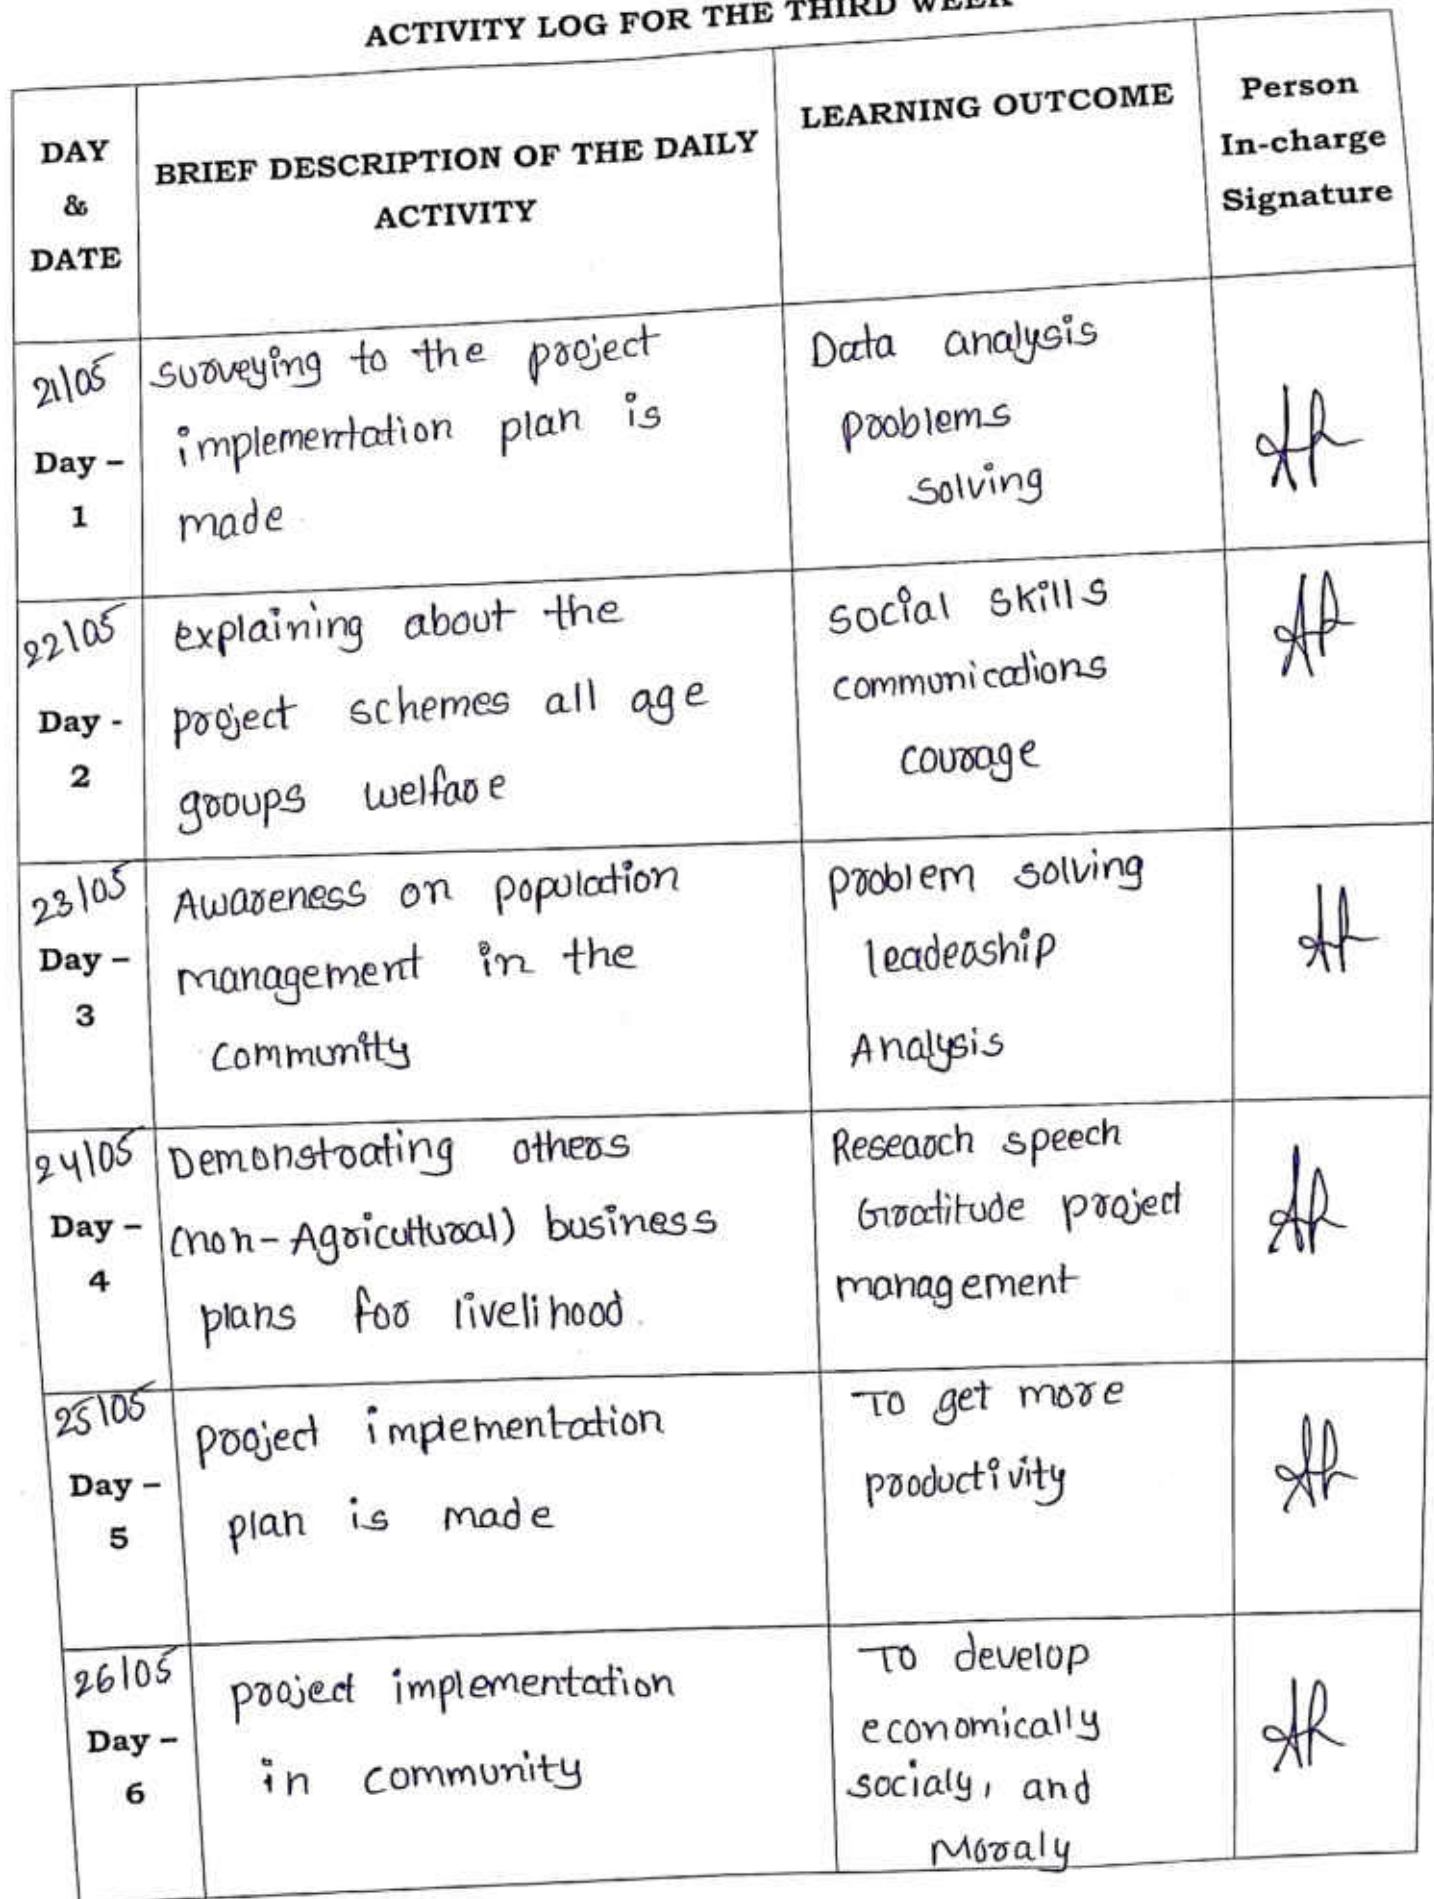 ACTIVITY LOG FOR THE THIRD WEEK
DAY
&
DATE
BRIEF DESCRIPTION OF THE DAILY
ACTIVITY
LEARNING OUTCOME
Person
In-charge
Signature
21/05
Day –
1
surveying to the project
implementation plan is
made
Data analysis
problems
solving
22/05
Day -
2
explaining about the
project schemes all age
groups welfare
social skills
communications
courage
23/05
Day –
3
Awareness on population
management in the
community
problem solving
leadership
Analysis
24/05
Day –
4
Demonstrating others
(non-Agricultural) business
plans for livelihood.
Research speech
Gratitude project
management
25/05
Day –
5
project implementation
plan is made
To get more
productivity
26/05
Day –
6
project implementation
in community
To develop
economically
socialy, and
Moraly